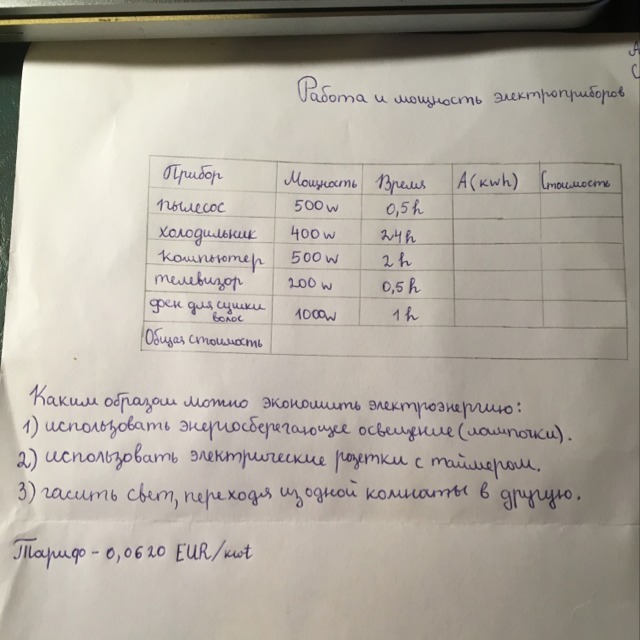 Работа и мощность электроприборов
Прибор Мощность Время A(kwh) Стоимость
пылесос 500w 0,5h
холодильник 400w 24h
компьютер 500w 2h
телевизор 200w 0,5h
фен для сушки волос 1000w 1h
Общая стоимость
Каким образом можно экономить электроэнергию:
1) использовать энергосберегающее освещение (лампочки).
2) использовать электрические розетки с таймером.
3) гасить свет, переходя из одной комнаты в другую.
Тариф - 0,0620 EUR/kwt